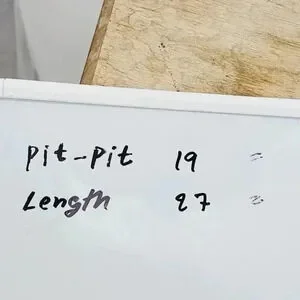 pit-pit 19 =
Length 27 =